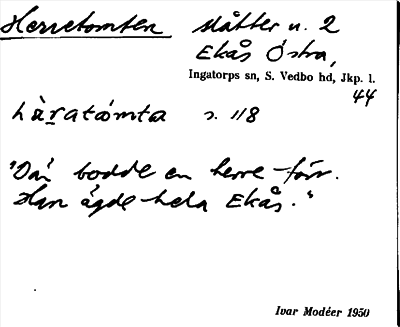 Herretomten slåtter n. 2
Ekås Östra,
Ingatorps sn, S. Vedbo hd, Jkp. l.
44
hàr̲atómta s. 118
"Där bodde en herre förr.
Han ägde hela Ekås."
Ivar Modéer 1950